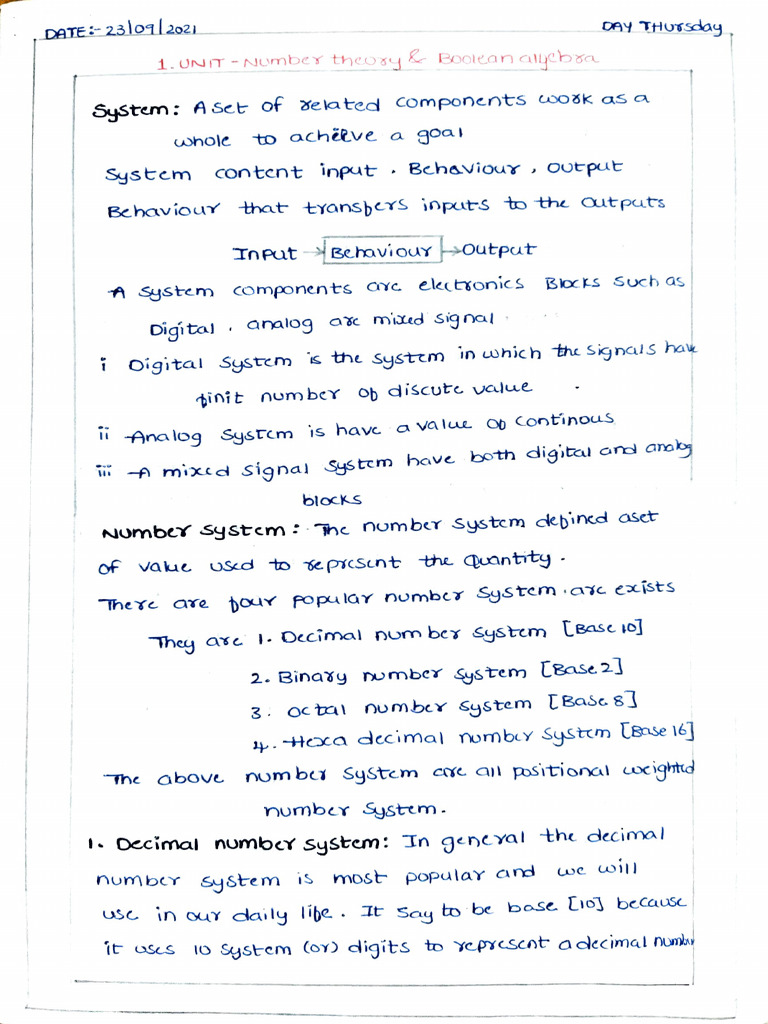 DATE:- 23/09/2021 DAY THURSday
1. UNIT - Number theory & Boolean algebra
System: A set of related components work as a
whole to acheive a goal
System content input, Behaviour, output
Behaviour that transfers inputs to the outputs
Input → Behaviour → Output
A system components are electronics Blocks such as
Digital, analog are mixed signal.
i Digital system is the system in which the signals have
finit number of discute value.
ii Analog system is have a value of continous
iii A mixed signal system have both digital and analog
blocks
Number system: The number system defined a set
of value used to represent the Quantity.
There are four popular number system. are exists
They are 1. Decimal number system [Base 10]
2. Binary number system [Base 2]
3. octal number system [Base 8]
4. Hexa decimal number system [Base 16]
The above number system are all positional weighted
number system.
1. Decimal number system: In general the decimal
number system is most popular and we will
use in our daily life. It say to be base [10] because
it uses 10 system (or) digits to represent a decimal number